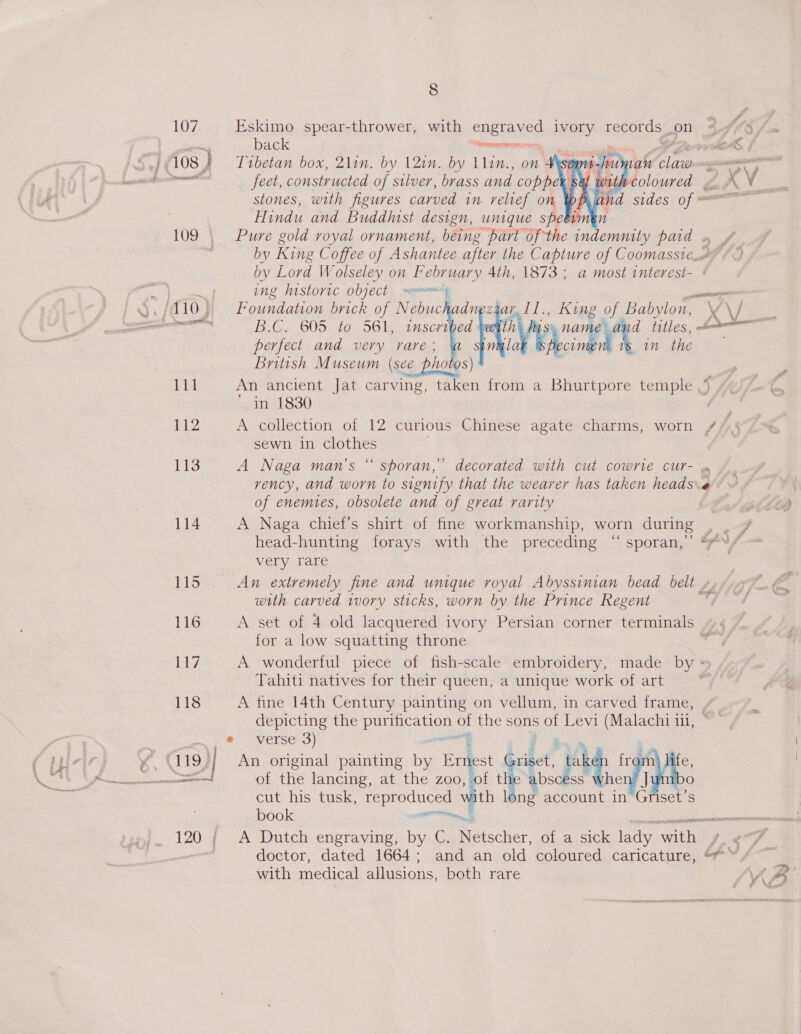 8
107 Eskimo spear-thrower, with engraved ivory records on
back
108 Tibetan box, 21in. by 12in. by 11in., on 4 semi-human claw
feet, constructed of silver, brass and copper, set with coloured
stones, with figures carved in relief on top and sides of
Hindu and Buddhist design, unique specimen
109 Pure gold royal ornament, being part of the indemnity paid
by King Coffee of Ashantee after the Capture of Coomassie
by Lord Wolseley on February 4th, 1873; a most interest-
ing historic object
110 Foundation brick of Nebuchadnezzar II., King of Babylon,
B.C. 605 to 561, inscribed with his name and titles,
perfect and very rare; a similar specimen is in the
British Museum (see photos)
111 An ancient Jat carving, taken from a Bhurtpore temple
in 1830
112 A collection of 12 curious Chinese agate charms, worn
sewn in clothes
113 A Naga man's “sporan,” decorated with cut cowrie cur-
rency, and worn to signify that the wearer has taken heads
of enemies, obsolete and of great rarity
114 A Naga chief's shirt of fine workmanship, worn during
head-hunting forays with the preceding “sporan,”
very rare
115 An extremely fine and unique royal Abyssinian bead belt
with carved ivory sticks, worn by the Prince Regent
116 A set of 4 old lacquered ivory Persian corner terminals
for a low squatting throne
117 A wonderful piece of fish-scale embroidery, made by
Tahiti natives for their queen, a unique work of art
118 A fine 14th Century painting on vellum, in carved frame,
depicting the purification of the sons of Levi (Malachi iii,
verse 3)
119 An original painting by Ernest Griset, taken from life,
of the lancing, at the zoo, of the abscess when Jumbo
cut his tusk, reproduced with long account in Griset's
book
120 A Dutch engraving, by C. Netscher, of a sick lady with
doctor, dated 1664; and an old coloured caricature,
with medical allusions, both rare